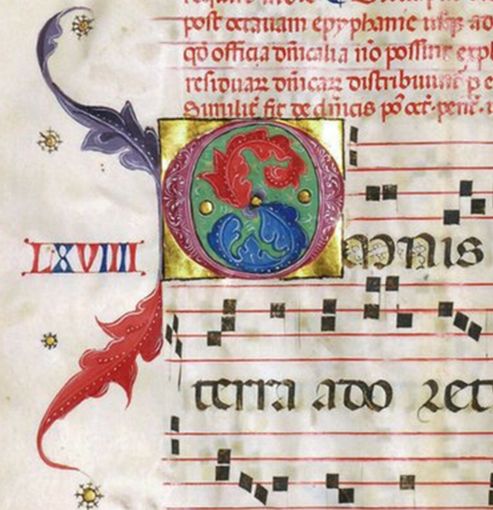 post octauam epyphanie usq; ad
qd officia dnicalia no possint expl
residuax dnicax distribuunt p
Similit fit de dnicis po oct. pent.
LXVIIII
OMNIS
terra ado ret